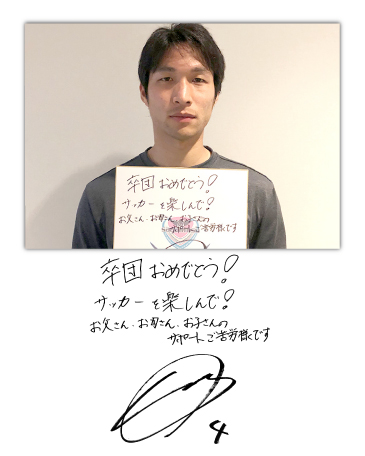 卒団おめでとう!
サッカーを楽しんで!
お父さん、お母さん、お子さんの
サポートご苦労様です
卒団おめでとう!
サッカーを楽しんで!
お父さん、お母さん、お子さんの
サポートご苦労様です
4